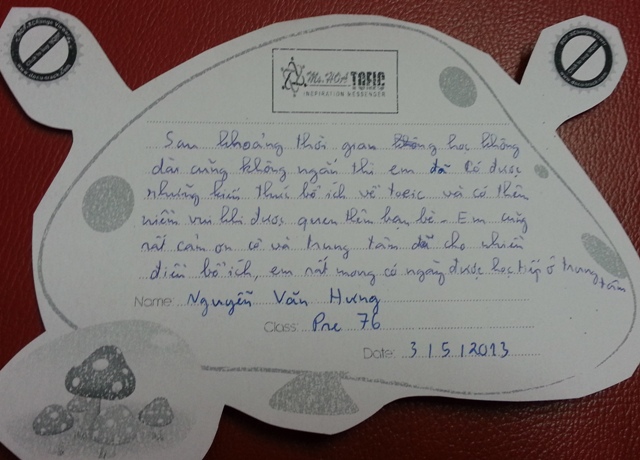 Ms. HOA TOEIC
INSPIRATION MESSENGER
Sau khoảng thời gian học không
dài cũng không ngắn thì em đã có được
những kiến thức bổ ích về toeic và có thêm
niềm vui khi được quen thêm bạn bè. Em cũng
rất cảm ơn cô và trung tâm đã cho nhiều
điều bổ ích, em rất mong có ngày được học tiếp ở trung tâm
Name: Nguyễn Văn Hưng
Class: Pre 76
Date: 3/5/2013